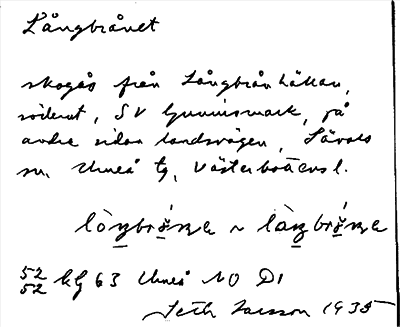 Långbrånet
skogås från Långbrånhällan,
söderut, SV Gunnismark, på
andra sidan landsvägen, Sävars
sn. Umeå tg, Västerbottens l.
52
52 kg 63 Umeå NO D1
Seth Larsson 1935